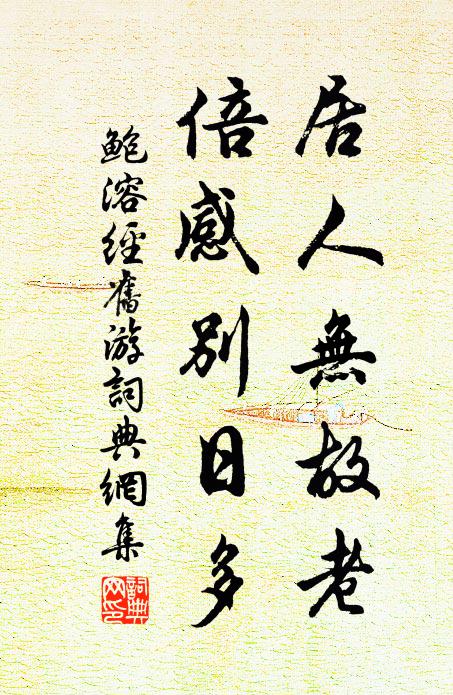 居人無故老
倍感別日多
鮑溶經舊游詞典網集
詞典網印